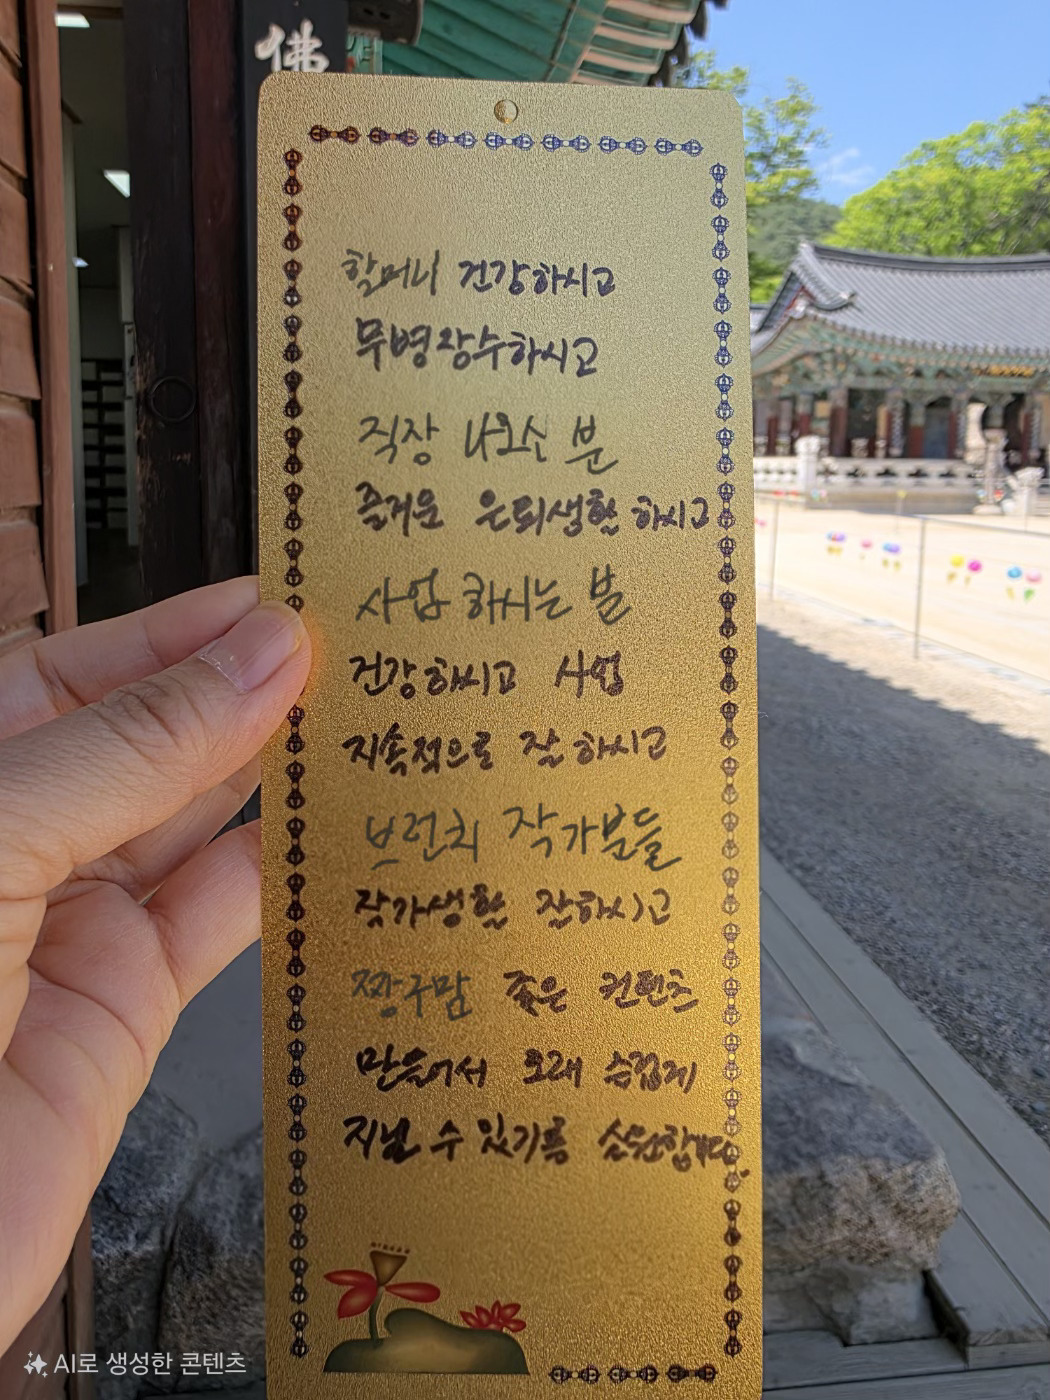 佛
할머니 건강하시고
무병장수하시고
직장 나오신 분
즐거운 은퇴생활 하시고
사업 하시는 분
건강하시고 사업
지속적으로 잘 하시고
브런치 작가분들
작가생활 잘하시고
짱구맘 좋은 컨텐츠
만들어서 오래 즐겁게
지낼 수 있기를 소원합니다.
AI로 생성한 콘텐츠